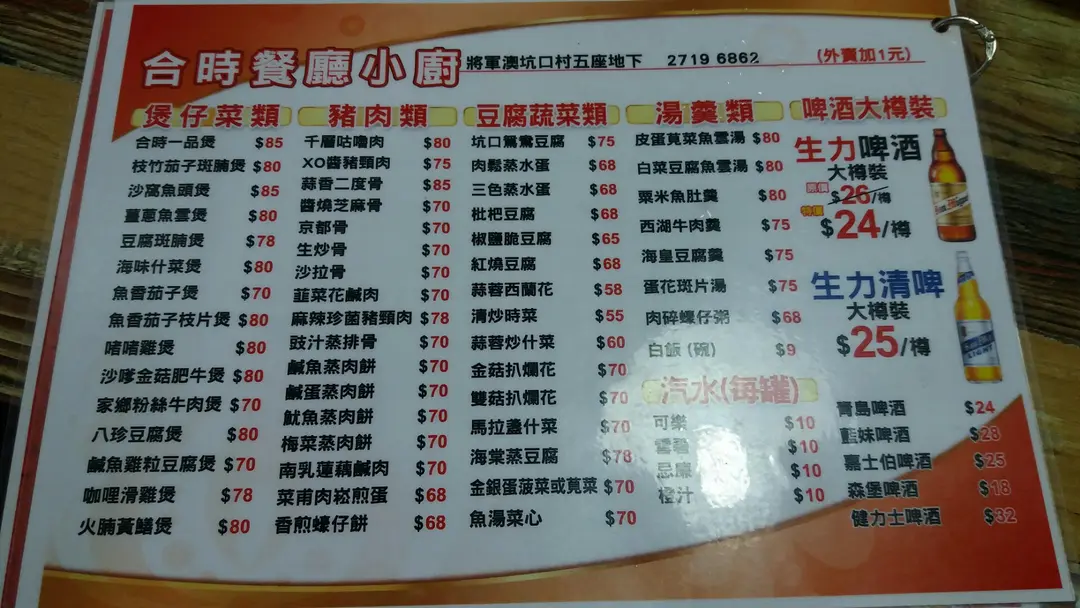 合時餐廳小廚 將軍澳坑口村五座地下 2719 6862 (外賣加1元)
煲仔菜類
合時一品煲 $85
枝竹茄子斑腩煲 $80
沙窩魚頭煲 $85
薑蔥魚雲煲 $80
豆腐斑腩煲 $78
海味什菜煲 $80
魚香茄子煲 $70
魚香茄子枝片煲 $80
啫啫雞煲 $80
沙嗲金菇肥牛煲 $80
家鄉粉絲牛肉煲 $70
八珍豆腐煲 $80
鹹魚雞粒豆腐煲 $70
咖喱滑雞煲 $78
火腩黃鱔煲 $80
豬肉類
千層咕嚕肉 $80
XO醬豬頸肉 $75
蒜香二度骨 $85
醬燒芝麻骨 $70
京都骨 $70
生炒骨 $70
沙拉骨 $70
韮菜花鹹肉 $70
麻辣珍菌豬頸肉 $78
豉汁蒸排骨 $70
鹹魚蒸肉餅 $70
鹹蛋蒸肉餅 $70
魷魚蒸肉餅 $70
梅菜蒸肉餅 $70
南乳蓮藕鹹肉 $70
菜甫肉崧煎蛋 $68
香煎蠔仔餅 $68
豆腐蔬菜類
坑口鴛鴦豆腐 $75
肉鬆蒸水蛋 $68
三色蒸水蛋 $68
枇杷豆腐 $68
椒鹽脆豆腐 $65
紅燒豆腐 $68
蒜蓉西蘭花 $58
清炒時菜 $55
蒜蓉炒什菜 $60
金菇扒爛花 $70
雙菇扒爛花 $70
馬拉盞什菜 $70
海棠蒸豆腐 $78
金銀蛋菠菜或莧菜 $70
魚湯菜心 $70
湯羹類
皮蛋莧菜魚雲湯 $80
白菜豆腐魚雲湯 $80
粟米魚肚羹 $80
西湖牛肉羹 $75
海皇豆腐羹 $75
蛋花斑片湯 $75
肉碎蠔仔粥 $68
白飯 (碗) $9
汽水(每罐)
可樂 $10
$10
忌廉 $10
橙汁 $10
啤酒大樽裝
生力啤酒
大樽裝
原價 $26/樽
特價 $24/樽
生力清啤
大樽裝
$25/樽
青島啤酒 $24
藍妹啤酒 $28
嘉士伯啤酒 $25
森堡啤酒 $18
健力士啤酒 $32